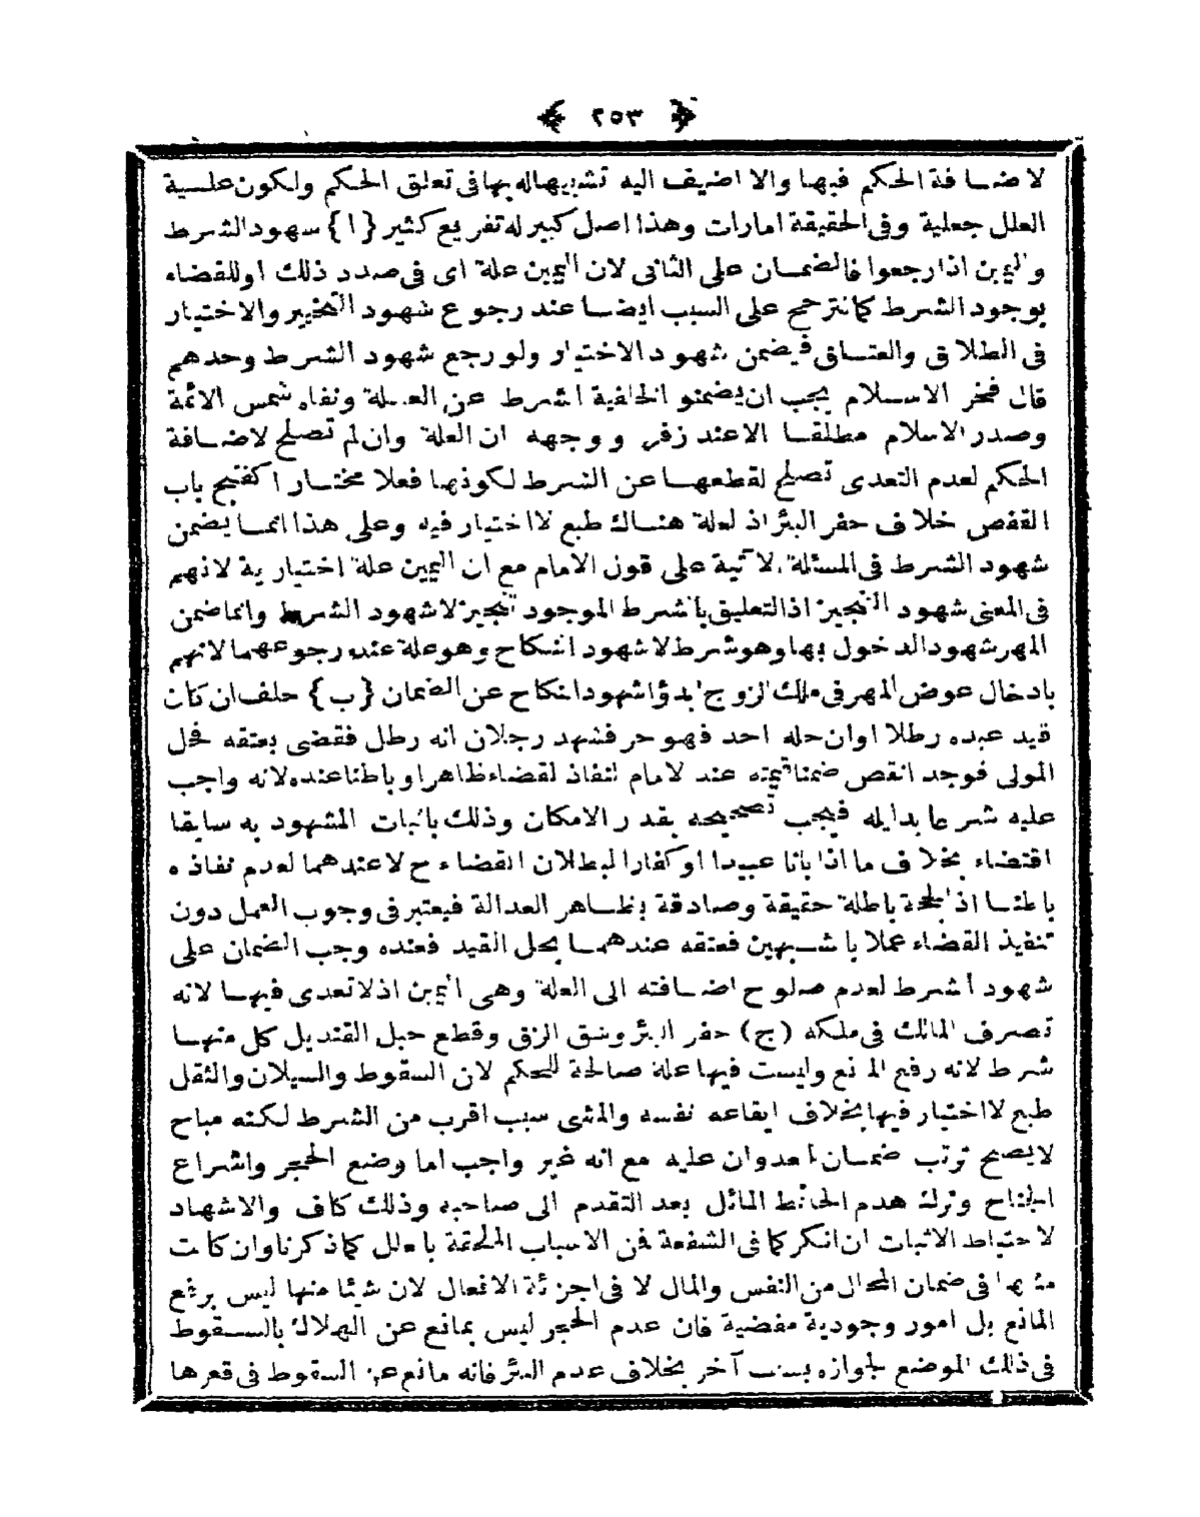 ﴿ ٢٥٣ ﴾
لاضافة الحكم فيها والا اضيف اليه تشبيهاله بها فى تعلق الحكم ولكون علية
العلل جعلية وفى الحقيقة امارات وهذا اصل كبير له تفريع كثير {ا} سهود الشرط
واليمين اذا رجعوا فالضمان على الثانى لان اليمين علة اى فى صدد ذلك او للقضاء
بوجود الشرط كما تترجح على السبب ايضا عند رجوع شهود التخيير والاختيار
فى الطلاق والعتاق فيضمن شهود الاختيار ولو رجع شهود الشرط وحدهم
قال فخر الاسلام يجب ان يضمنوا لخلفية الشرط عن العلة ونفاه شمس الائمة
وصدر الاسلام مطلقا الا عند زفر ووجهه ان العلة وان لم تصلح لاضافة
الحكم لعدم التعدى تصلح لقطعها عن الشرط لكونها فعلا مختارا كفتح باب
القفص خلاف حفر البئر اذ لعلة هناك طبع لا اختيار فيه وعلى هذا انما يضمن
شهود الشرط فى المسئلة الآتية على قول الامام مع ان اليمين علة اختيارية لانهم
فى المعنى شهود التنجيز اذ التعليق بالشرط الموجود تنجيز لا شهود الشرط وانما ضمن
المهر شهود الدخول بها وهو شرط لا شهود النكاح وهو علة عند رجوعهما لانهم
بادخال عوض المهر فى ملك الزوج ابدؤا شهود النكاح عن الضمان {ب} حلف ان كان
قيد عبده رطلا او ان حله احد فهو حر فشهد رجلان انه رطل فقضى بعتقه فحل
المولى فوجد انقص ضمنا قيمته عند الامام لنفاذ لقضاء ظاهرا وباطنا عنده لانه واجب
عليه شرعا بدليله فيجب تصحيحه بقدر الامكان وذلك باثبات المشهود به سابقا
اقتضاء بخلاف ما اذا بانا عبيدا او كفارا لبطلان القضاء ح لا عندهما لعدم نفاذه
باطنا اذ الحجة باطلة حقيقة وصادقة بظاهر العدالة فيعتبر فى وجوب العمل دون
تنفيذ القضاء عملا بالشبهين فعتقه عندهما بحل القيد فعنده وجب الضمان على
شهود الشرط لعدم صلوح اضافته الى العلة وهى اليمين اذ لا تعدى فيها لانه
تصرف المالك فى ملكه (ج) حفر البئر وشق الزق وقطع حبل القنديل كل منها
شرط لانه رفع المانع وليست فيها علة صالحة للحكم لان السقوط والسيلان والثقل
طبع لا اختيار فيها بخلاف ايقاعه نفسه والمشى سبب اقرب من الشرط لكنه مباح
لا يصح ترتب ضمان العدوان عليه مع انه غير واجب اما وضع الحجر واشراع
الجناح وترك هدم الحائط المائل بعد التقدم الى صاحبه وذلك كاف والاشهاد
لاحتياط الاثبات ان انكر كما فى الشفعة فمن الاسباب الملحقة بالعلل كما ذكرنا وان كانت
مثلها فى ضمان المحال من النفس والمال لا فى اجزئة الافعال لان شيئا منها ليس برفع
المانع بل امور وجودية مفضية فان عدم الحجر ليس بمانع عن الهلاك بالسقوط
فى ذلك الموضع لجوازه بسبب آخر بخلاف عدم البئر فانه مانع عن السقوط فى قعرها